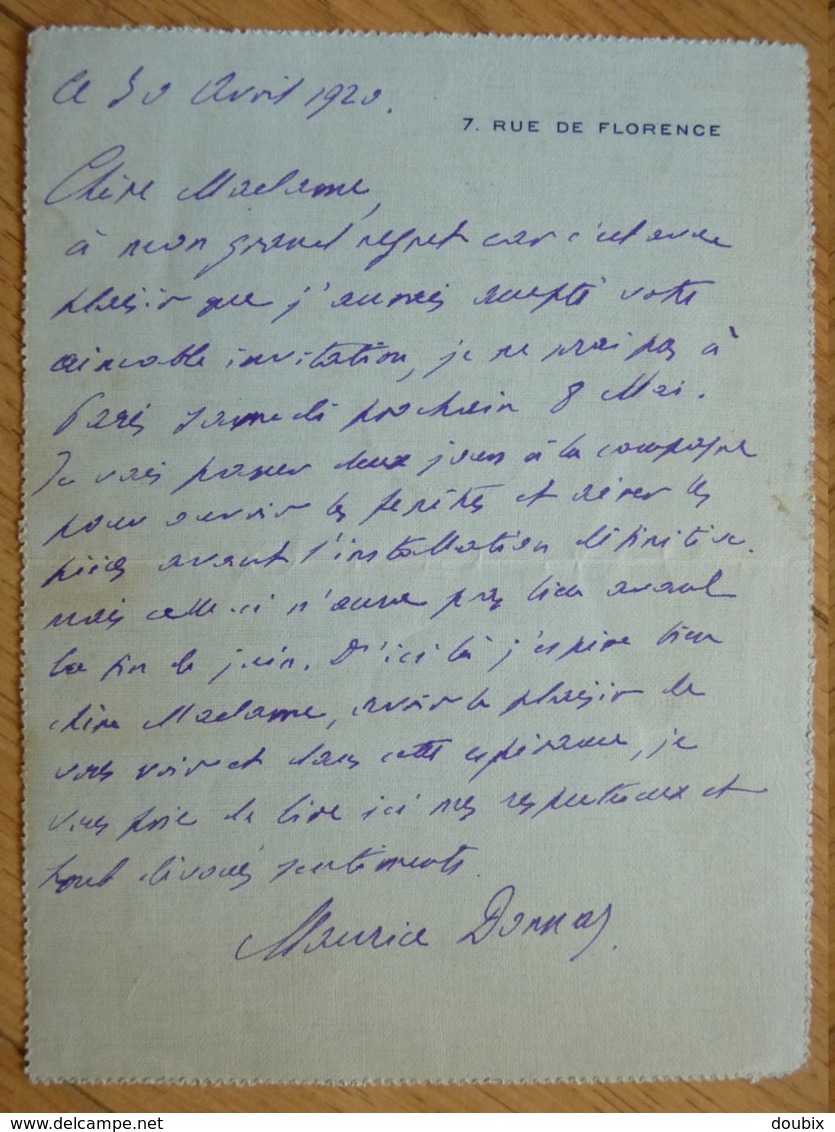 Ce 30 Avril 1920.
7. RUE DE FLORENCE
Chère Madame,
à mon grand regret car c'est avec
plaisir que j'aurais accepté votre
aimable invitation, je ne serai pas à
Paris samedi prochain 8 Mai.
Je vais passer deux jours à la campagne
pour ouvrir les fenêtres et aérer les
pièces avant l'installation définitive.
mais celle-ci n'aura pas lieu avant
la fin de juin. D'ici là j'espère bien
chère Madame, avoir le plaisir de
vous voir et dans cette espérance, je
vous prie de lire ici mes respectueux et
tout dévoués sentiments.
Maurice Donnay.
delcampe.net
doubix